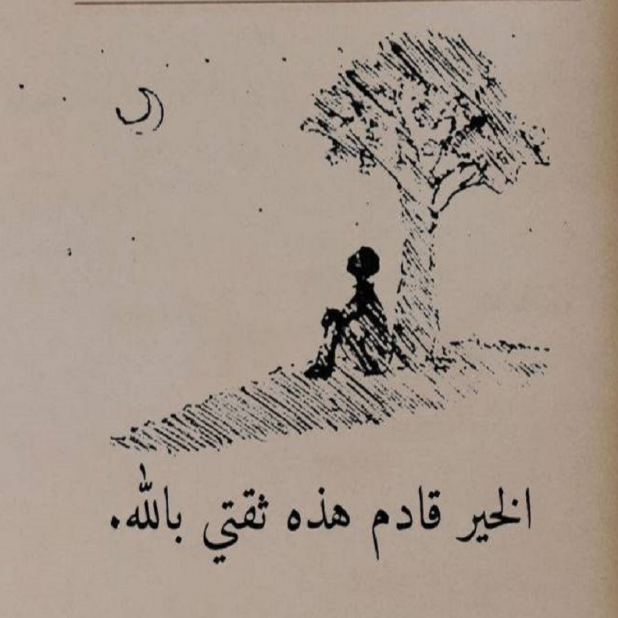 الخير قادم هذه ثقتي بالله.